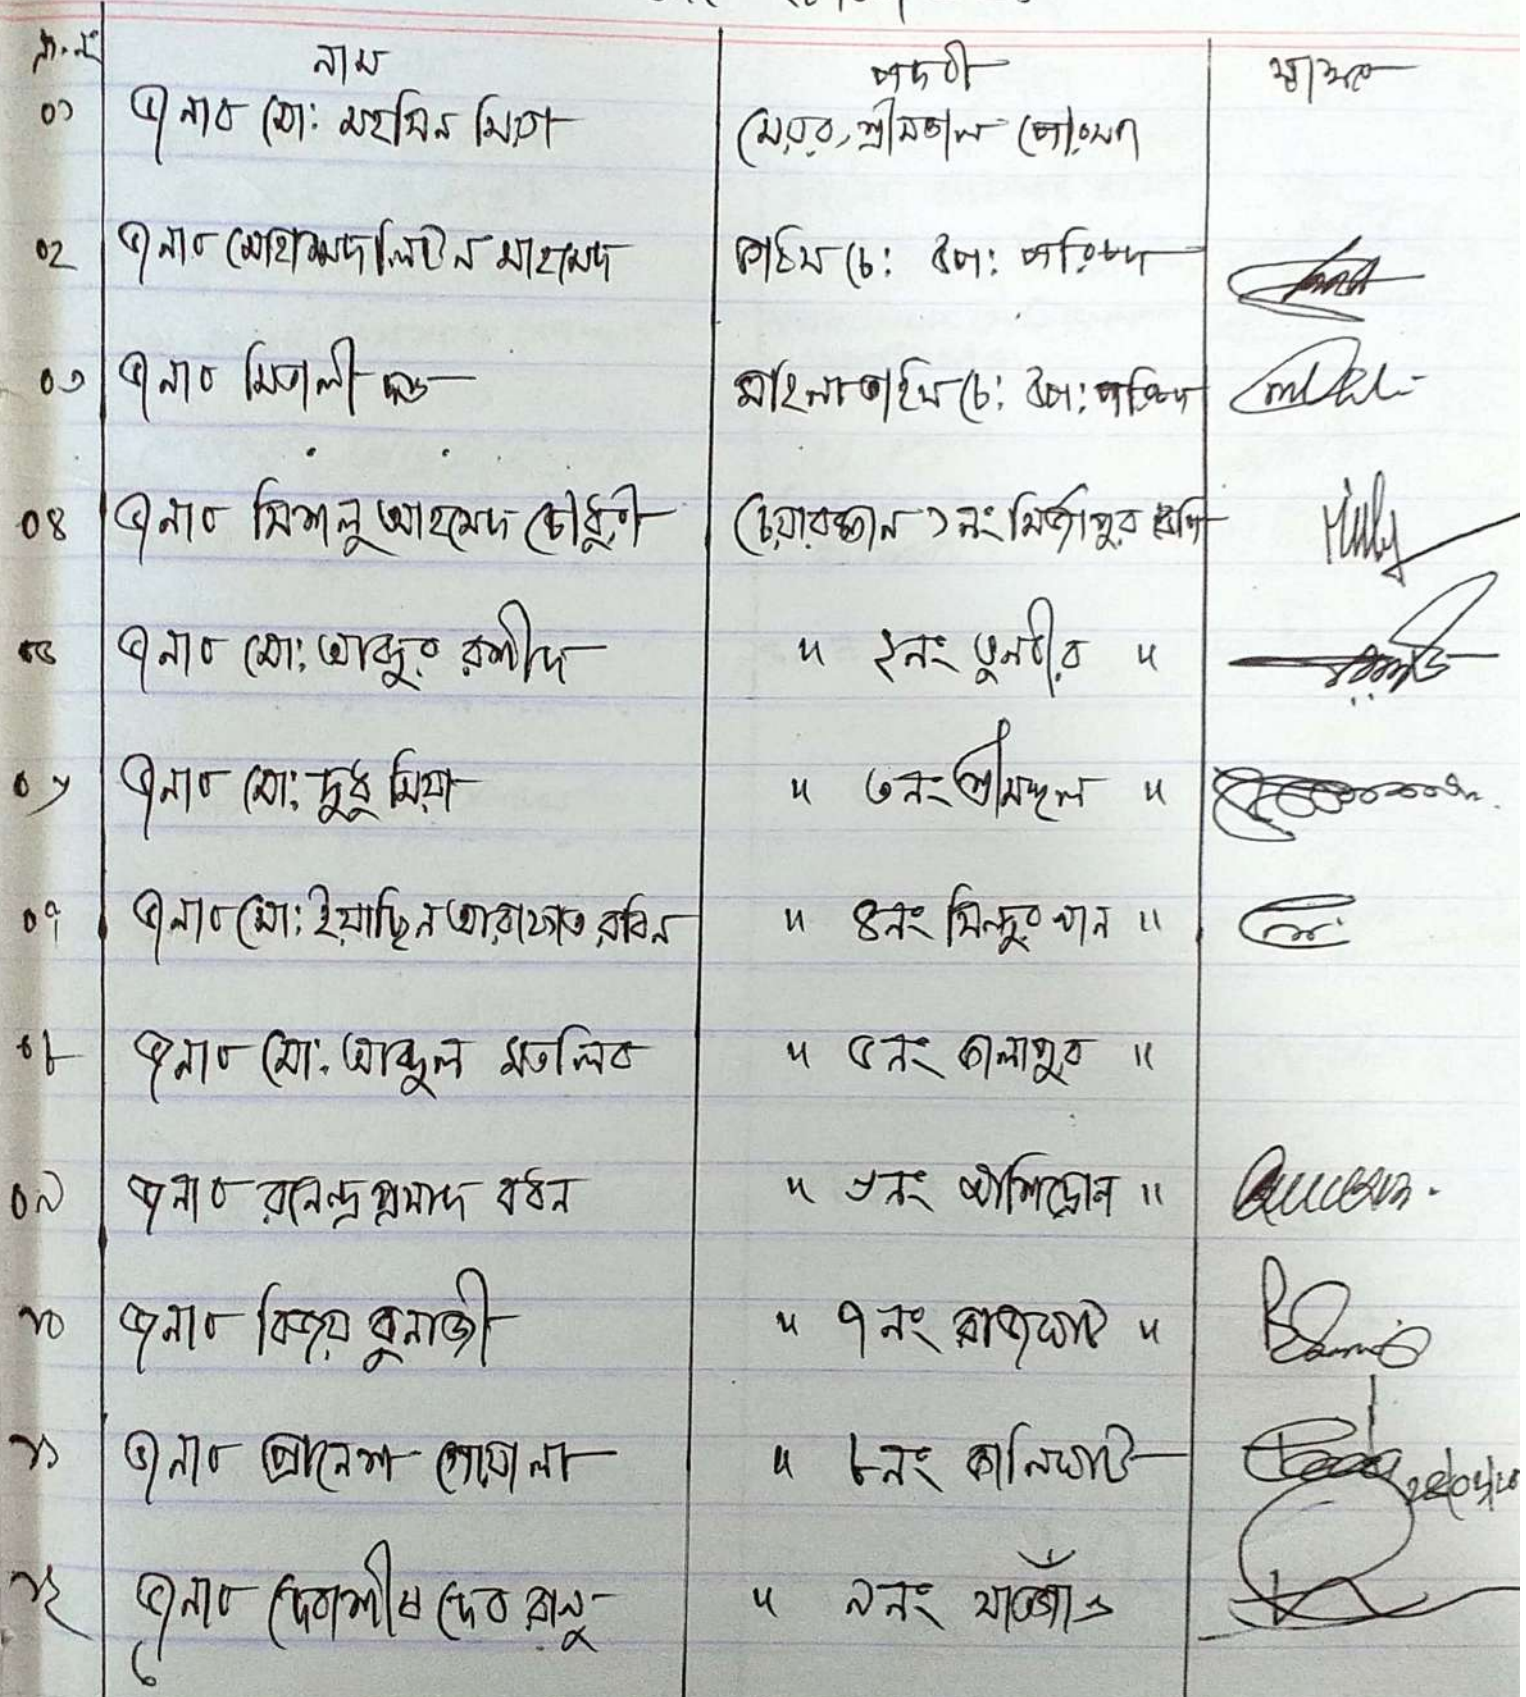 নাম পদবী স্বাক্ষর
০১ জনাব মো: মহসিন মিয়া মেয়র, শ্রীমঙ্গল পৌরসভা
০২ জনাব মোহাম্মদ লিটন আহমেদ ভাইস চে: উপ: পরিষদ
০৩ জনাব মিতালী দত্ত মহিলা ভাইস চে: উপ: পরিষদ
০৪ জনাব মিশলু আহমেদ চৌধুরী চেয়ারম্যান ১নং মির্জাপুর ইউপি
০৫ জনাব মো: আব্দুর রশীদ " ২নং ভুনবীর "
০৬ জনাব মো: দুধু মিয়া " ৩নং শ্রীমঙ্গল "
০৭ জনাব মো: ইয়াছিন আরাফাত রবিন " ৪নং সিন্দুরখান "
০৮ জনাব মো: আব্দুল মতলিব " ৫নং কালাপুর "
০৯ জনাব রনেন্দ্র প্রসাদ বর্ধন " ৬নং আশিদ্রোন "
১০ জনাব বিজয় বুনার্জী " ৭নং রাজঘাট "
১১ জনাব প্রানেশ গোয়ালা " ৮নং কালিঘাট
১২ জনাব দেবাশীষ দেব রানু " ৯নং সাতগাঁও